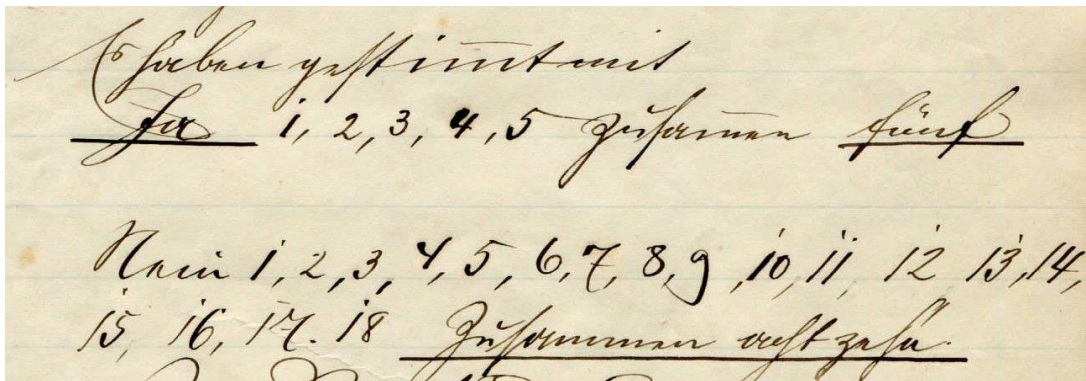 Es haben gestimmt mit
Ja 1, 2, 3, 4, 5 zusammen fünf
Nein 1, 2, 3, 4, 5, 6, 7, 8, 9, 10, 11, 12 13, 14,
15, 16, 17. 18 Zusammen achtzehn.